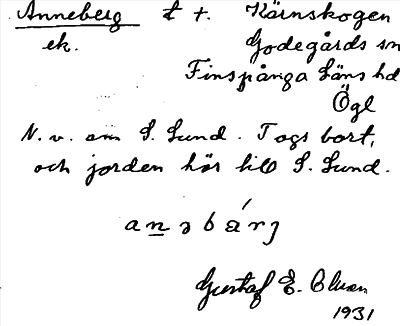 Anneberg t +. Kärnskogen
ek. Godegårds sn
Finspånga läns hd
Ögl
N. v. om S. Lund. Togs bort,
och jorden hör till S. Lund.
anəbárj
Gustaf E.
1931